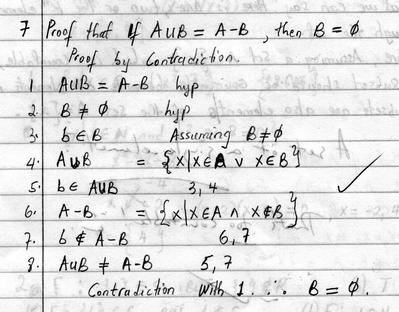 7 Proof that if A∪B = A-B, then B = ∅
Proof by Contradiction.
1 A∪B = A-B hyp
2. B ≠ ∅ hyp
3. b∈B Assuming B≠∅
4. A∪B = {x|x∈A ∨ x∈B}
5. b∈ A∪B 3, 4
6. A-B = {x|x∈A ∧ x∉B}
7. b ∉ A-B 6, 7
8. A∪B ≠ A-B 5, 7
Contradiction with 1. ∴ B = ∅.